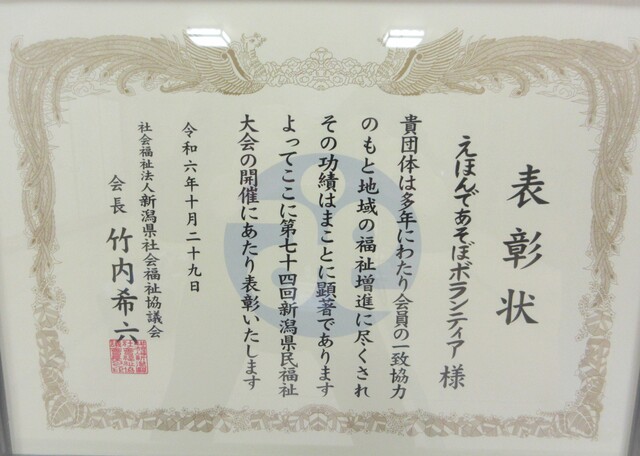 表彰状
えほんであそぼボランティア 様
貴団体は多年にわたり会員の一致協力
のもと地域の福祉増進に尽くされ
その功績はまことに顕著であります
よってここに第七十四回新潟県民福祉
大会の開催にあたり表彰いたします
令和六年十月二十九日
社会福祉法人新潟県社会福祉協議会
会長 竹内希六